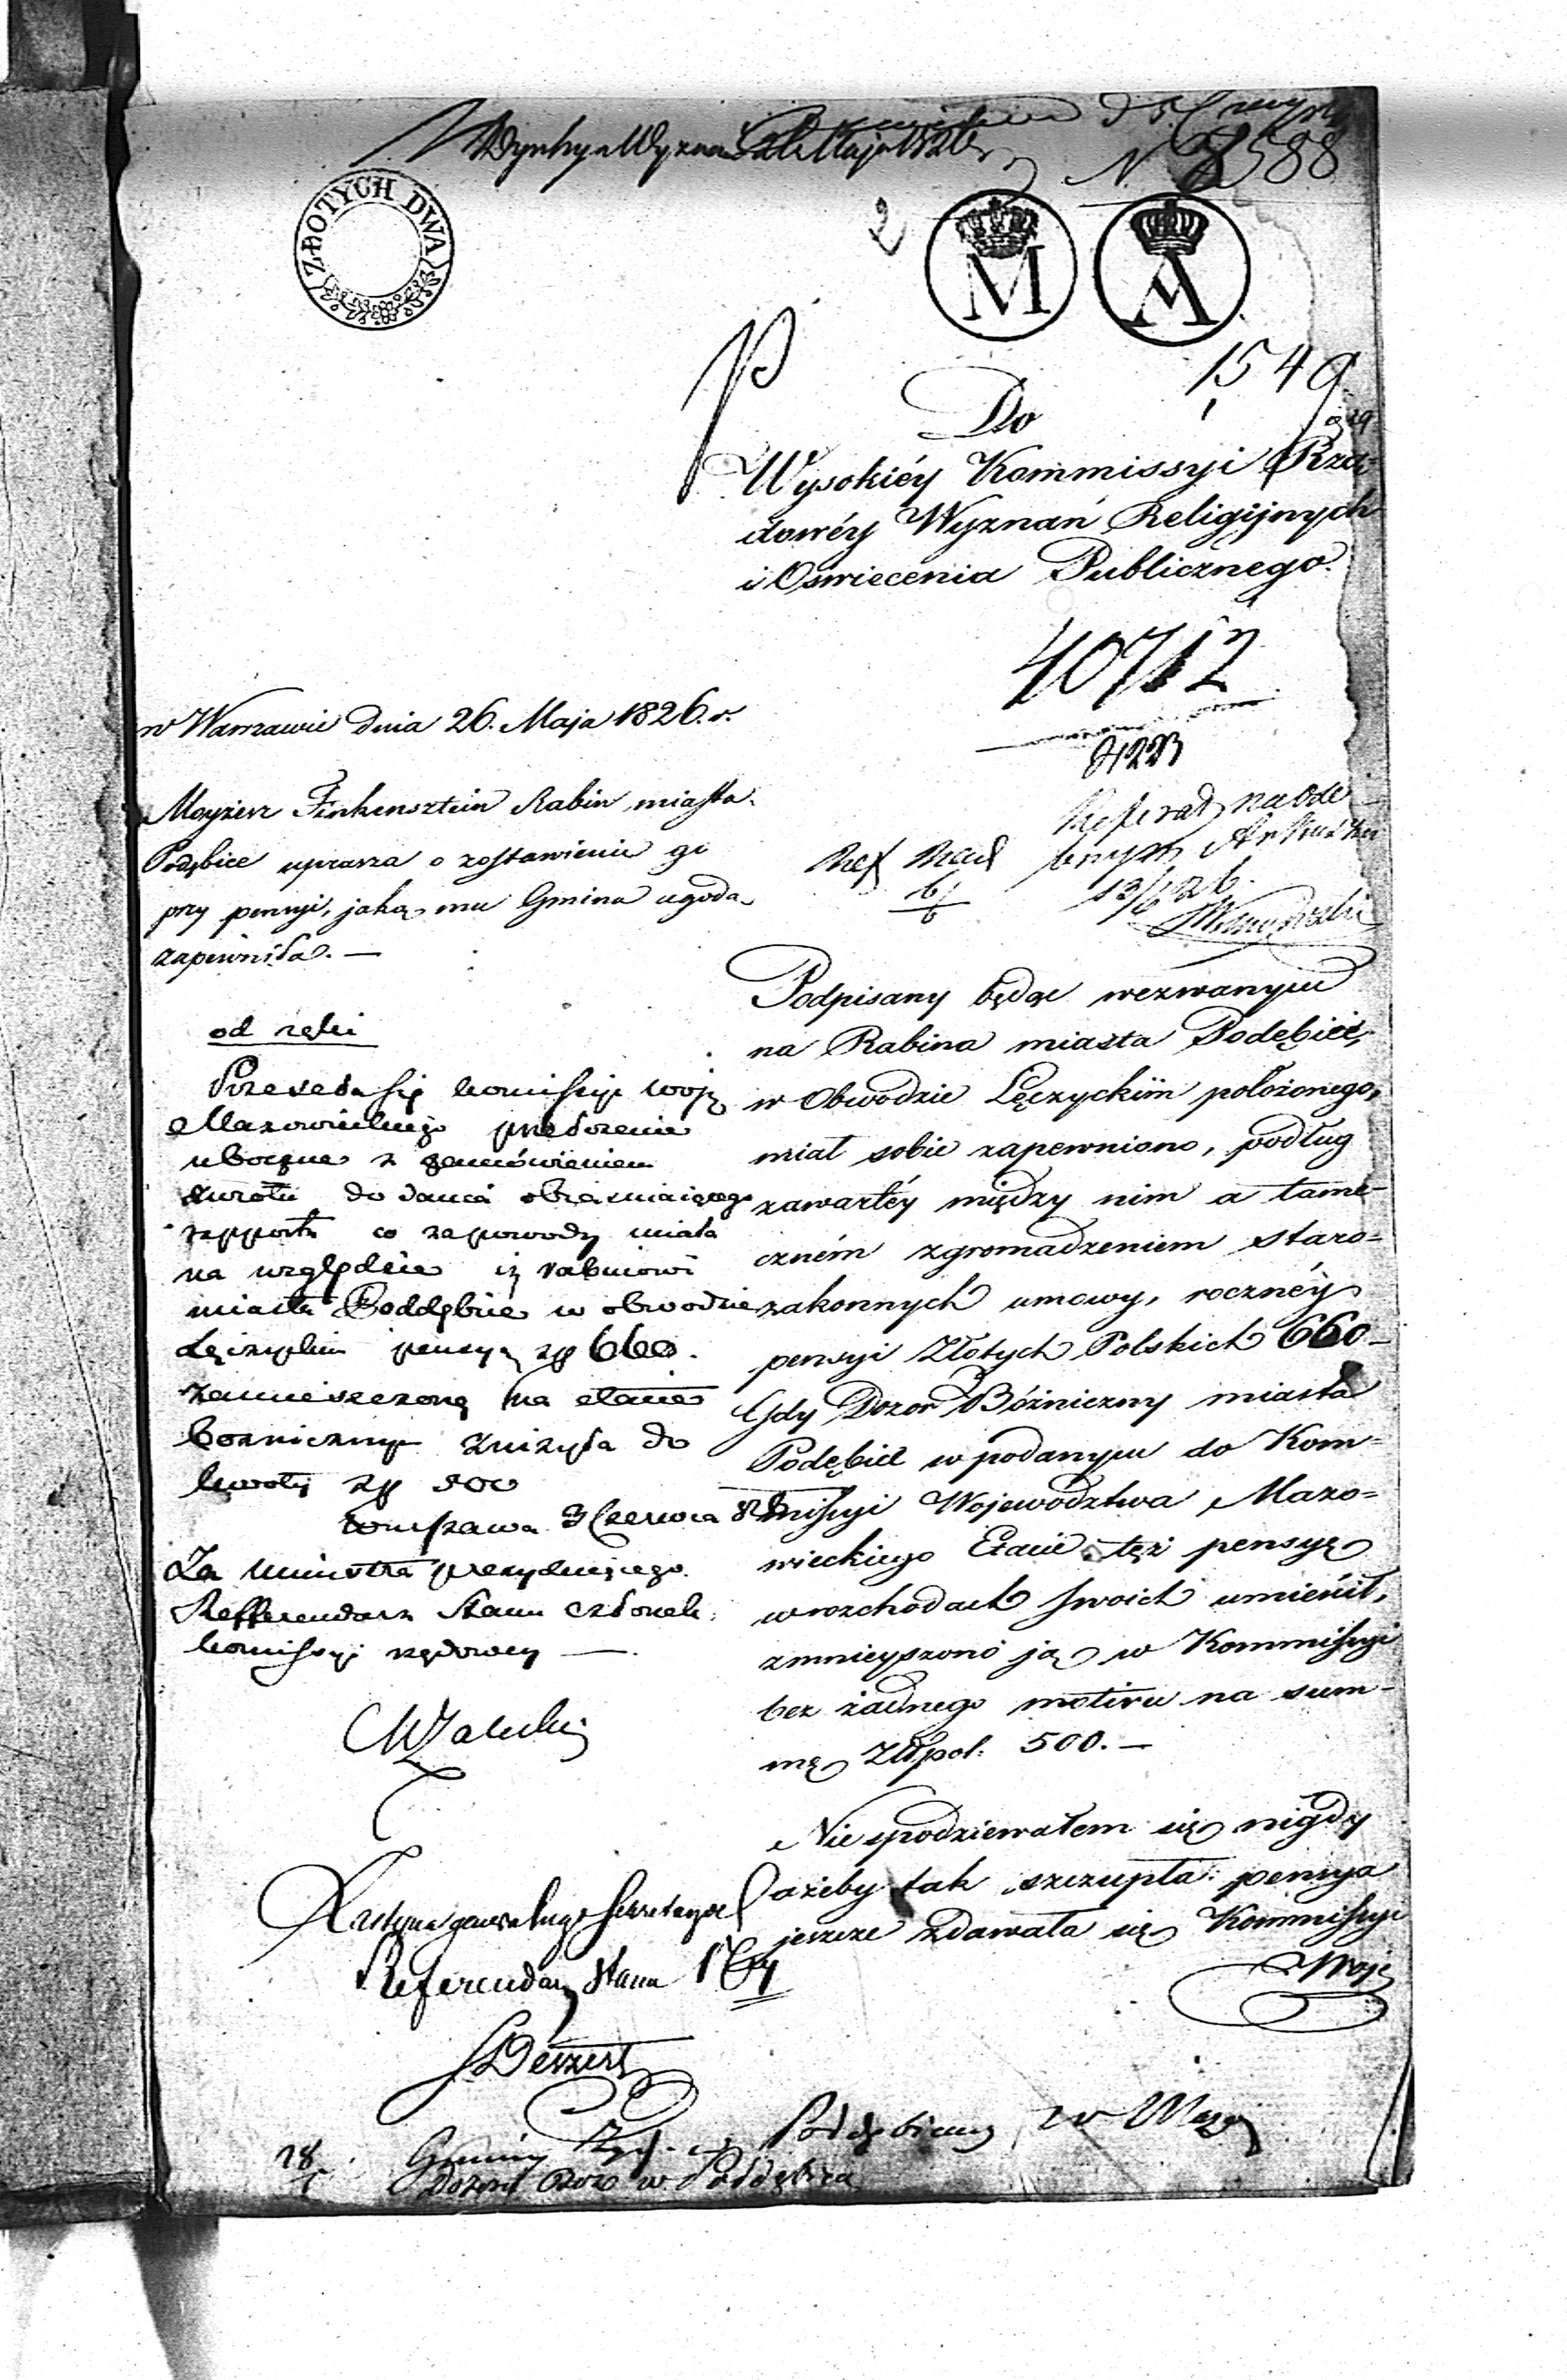 Maja 1826
N. 2588
ZŁOTYCH DWA
2
M
A
1549
Do
Wysokiéy Kommissyi Rzą-
dowéy Wyznań Religijnych
i Oswiecenia Publicznego.
40712
w Warszawie dnia 26. Maja 1826. r.
4223
Moyżesz Finkensztein Rabin miasta
Podębice uprasza o zostawienie go
przy pensyi, jaką mu Gmina ugodą
zapewniła. —
Referat
13/6 26.
6/6
od ręki
Przeseła się kommissyi wojz
Mazowieckiego przełożenie
uboczne z zamówieniem
zwrotu do dania obiasniaiącego
rapportu co za powody miała
na względzie iż rabinowi
miasta Poddębice w obwodzie
Łęczyckim pensyą zp 660.
zamieszczoną na etacie
bożnicznym zniżyła do
kwoty zp 500
Warszawa 3 Czerwca 826
Za ministra prezyduiącego
Refferendarz Stanu członek
kommissyi rządowey —
Zastępca generalnego Sekretarza
Referendarz Stanu
Podpisany będąc wezwanym
na Rabina miasta Podębice,
w Obwodzie Łęczyckiim położonego,
miał sobie zapewniono, podług
zawartéy między nim a tame-
czném zgromadzeniem staro=
zakonnych umowy, rocznéy
pensyi Złotych Polskich 660 —
Gdy Dozór Bóżniczny miasta
Podębice w podanym do Kom=
missyi Województwa Mazo=
wieckiego Etacie też pensyę
w rozchodach swoich umieścił,
zmnieyszono ją w Kommissyi
bez żadnego motivu na sum-
mę Złt pol: 500. —
Nie spodziewałem się nigdy
ażeby tak szczupła pensya
jeszcze zdawała się Kommissyi
Woje
28
Gminy Poddębice w Mazo
Dozoru Bożn w Poddębica